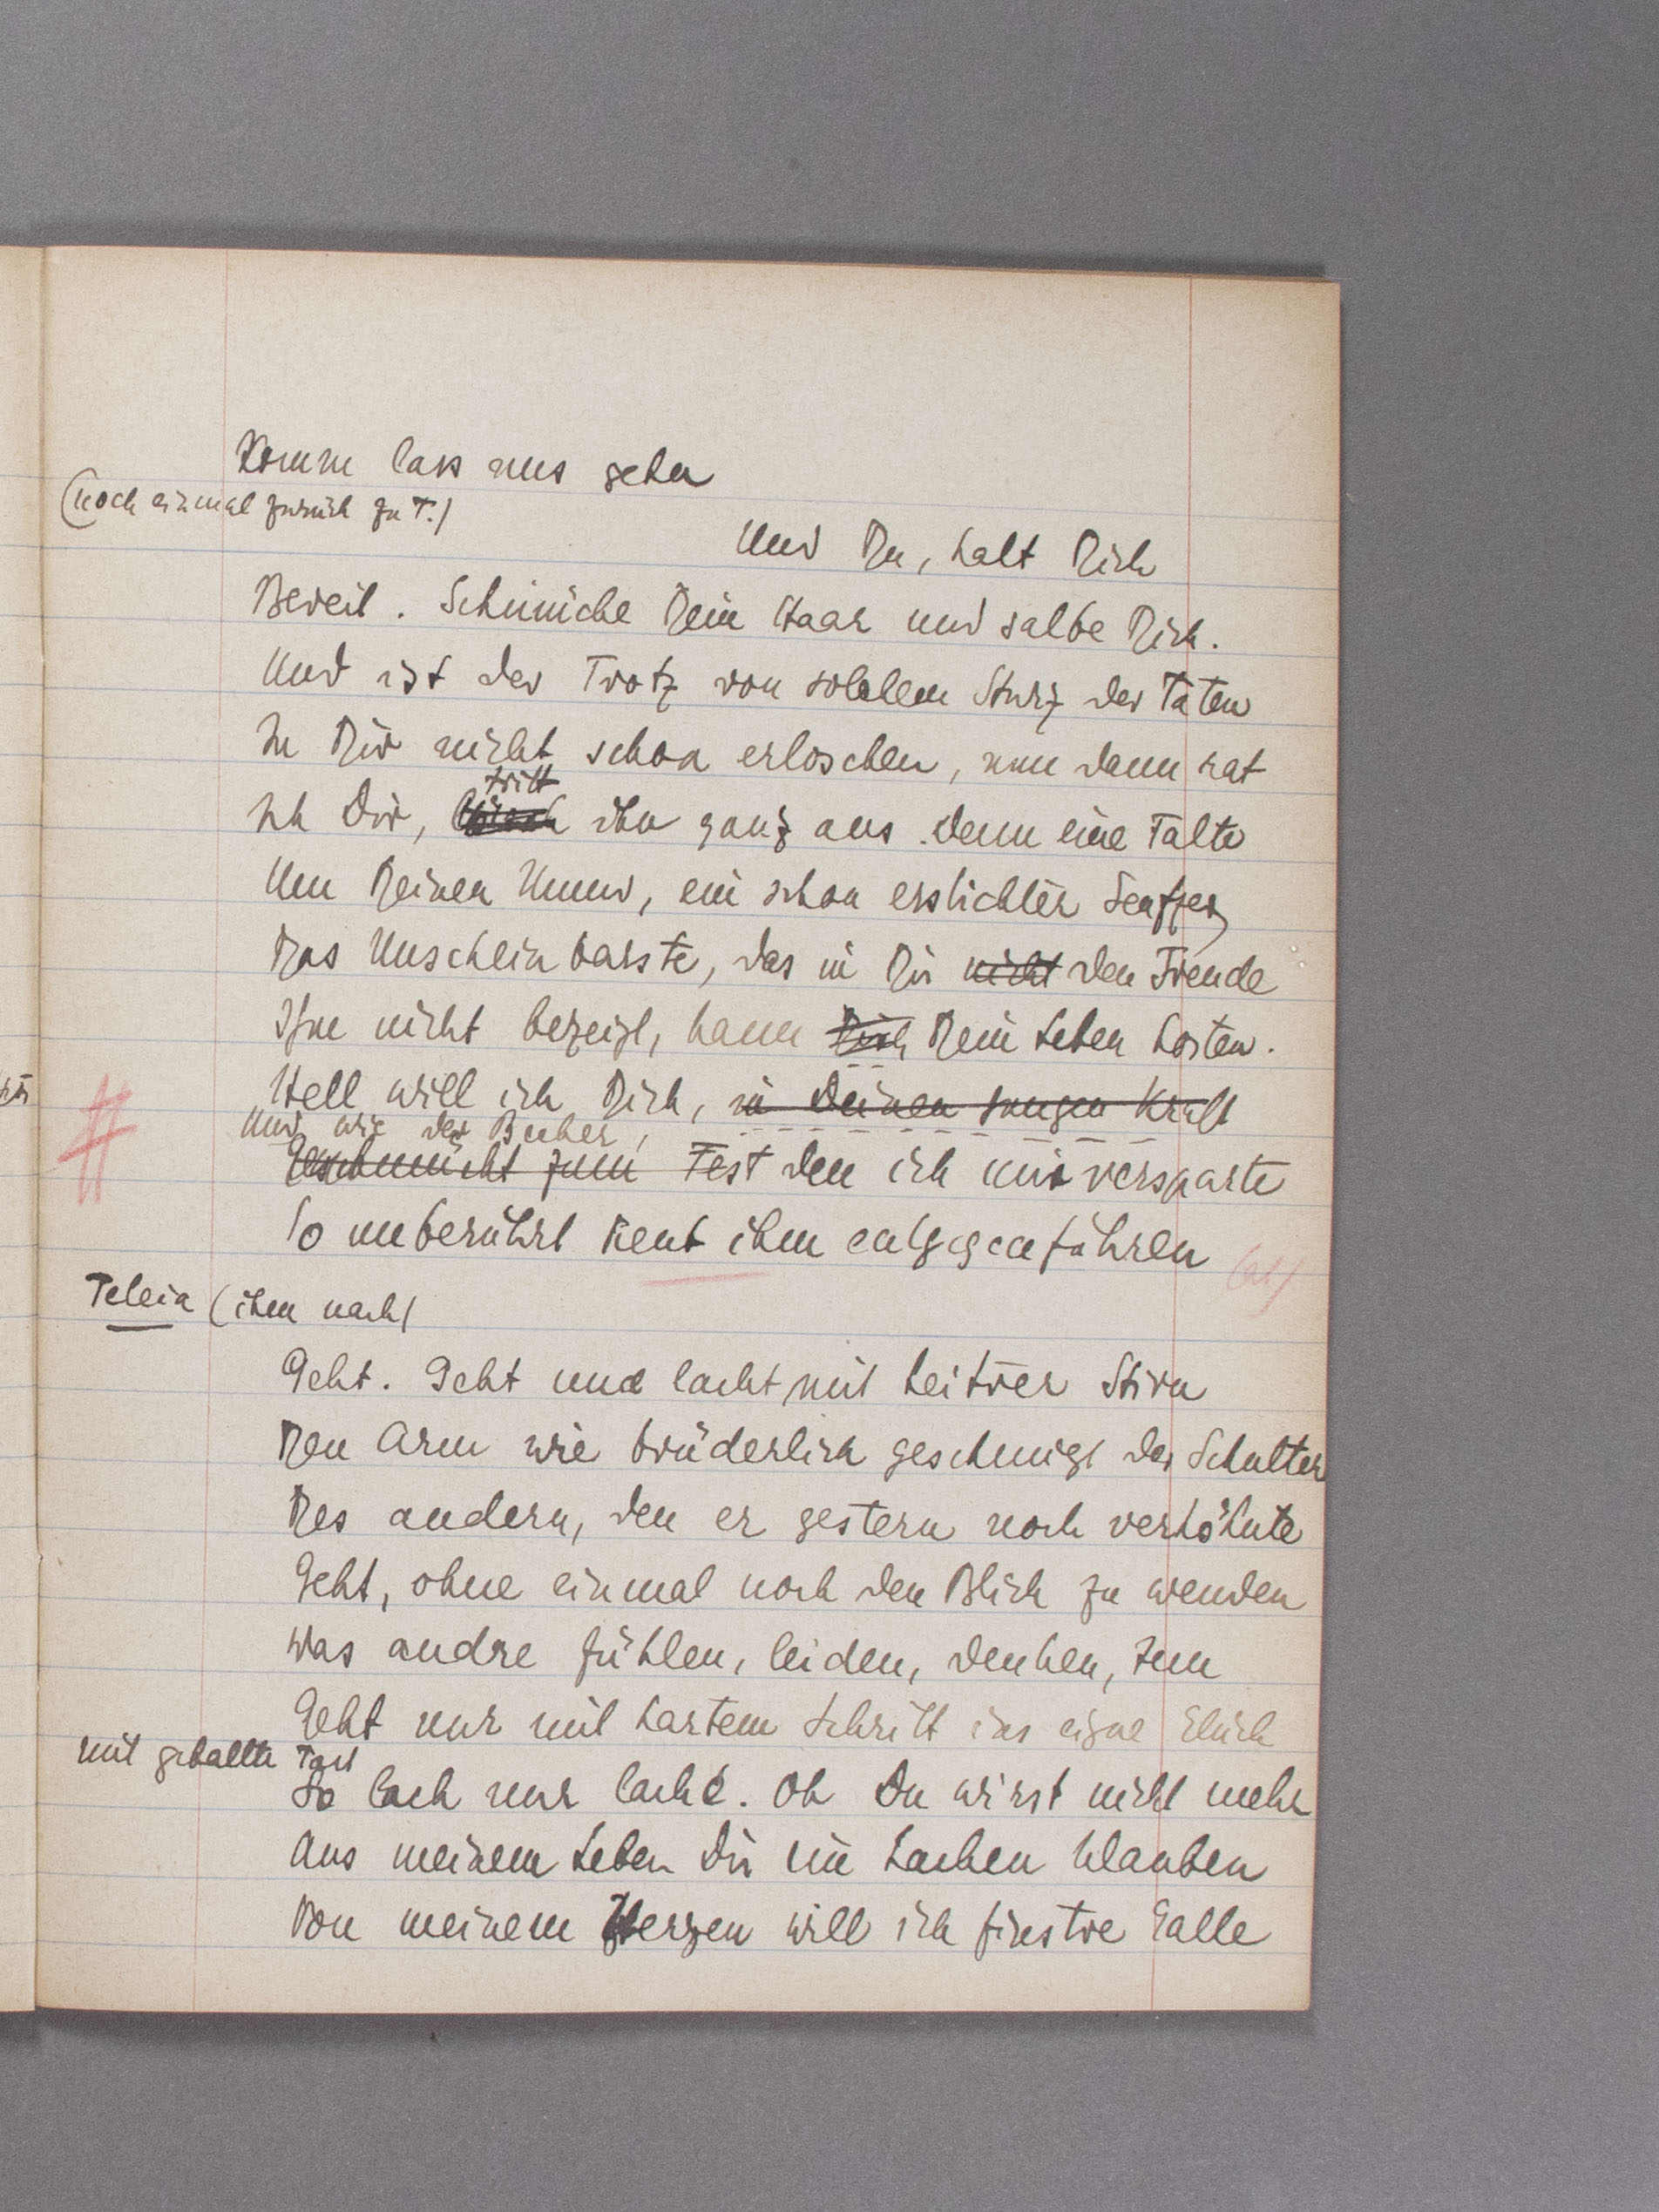 Komm lass uns gehn
(noch einmal zurück zu T.)
Und Du, halt Dich
Bereit. Schmücke Dein Haar und salbe Dich.
Und ist der Trotz von solchem Sturz der Taten
In Dir nicht schon erloschen, nun dann rat
tritt
Ich Dir, ihn ganz aus. denn eine Falte
Um Deinen Mund, ein schon erstickter Seufzer
Das Unscheinbarste, das in Dir nicht den Freude
Ihm nicht bezeigt, kann Dich Dein Leben kosten.
Hell will ich Dich, in Deiner jungen Kraft
Und wie der Becher,
Geschmückt zum Fest den ich mir versparte
So unberührt heut ihm entgegenführen
Teleia (ihm nach)
Geht. Geht und lacht mit heitrer Stirn
Den Arm wie brüderlich geschmiegt der Schulter
Des andern, den er gestern noch verhöhnte
Geht, ohne einmal noch den Blick zu wenden
Was andre fühlen, leiden, denken, tun
Geht nur mit hartem Schritt ins eigne Glück
mit geballter Faust
So lach nur lache. Oh Du wirst nicht mehr
Aus meinem Leben Dir ein Lachen klauben
Von meinem Herzen will ich finstre Galle